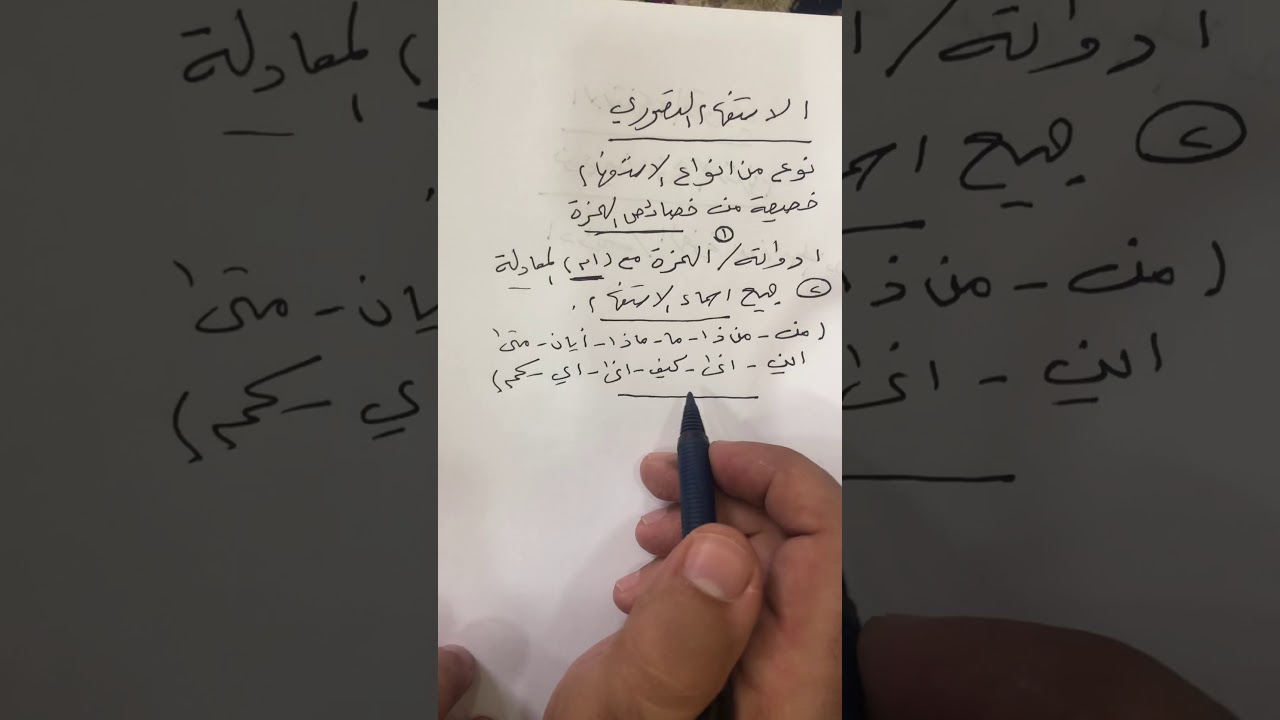 الاستفهام التصوري
نوع من انواع الاستفهام
خصيصة من خصائص الهمزة
ادواته / ① الهمزة مع (ام) المعادلة
② جميع اسماء الاستفهام .
(من - من ذا - ما - ماذا - أيان - متى
اين - انى - كيف - انى - اي - كم)